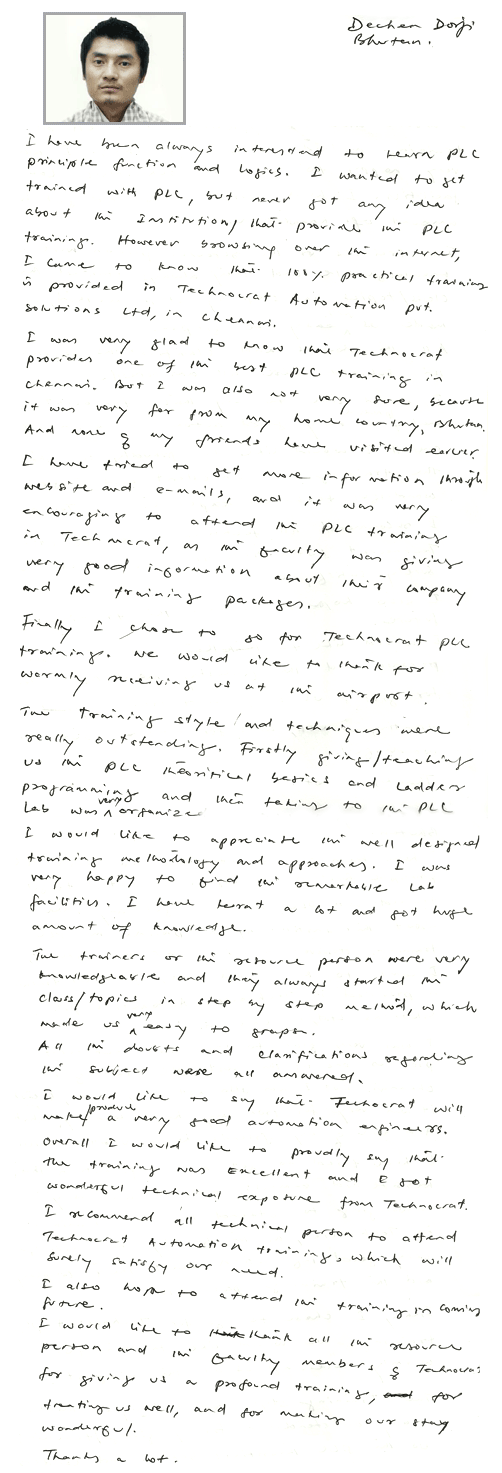 Dechen Dorji
Bhutan.
I have been always interested to learn PLC
principle function and logics. I wanted to get
trained with PLC, but never got any idea
about the Institution/ that provide the PLC
training. However browsing over the internet,
I came to know that 100% practical training
is provided in Technocrat Automation pvt.
solutions Ltd, in Chennai.
I was very glad to know that Technocrat
provides one of the best PLC training in
Chennai. But I was also not very sure, because
it was very far from my home country, Bhutan.
And none of my friends have visited earlier.
I have tried to get more information through
website and e-mails, and it was very
encouraging to attend the PLC training
in Technocrat, as the faculty was giving
very good information about their company
and the training packages.
Finally I chose to go for Technocrat PLC
training. We would like to thank for
warmly receiving us at the airport.
The training style and techniques were
really outstanding. Firstly giving/teaching
us the PLC theoritical basics and Ladder
programming and then taking to the PLC
Lab was very organize
I would like to appreciate the well designed
training methodology and approaches. I was
very happy to find the remarkable Lab
facilities. I have learnt a lot and got huge
amount of knowledge.
The trainers or the resource person were very
knowledgeable and they always started the
class/topics in step by step method, which
made us very easy to grapsn.
All the doubts and clarifications regarding
the subject were all answered.
I would like to say that Techocrat will
make/produce a very good automation engineers.
Overall I would like to proudly say that
the training was Excellent and I got
wonderful technical exposure from Technocrat.
I recommend all technical person to attend
Technocrat Automation training, which will
surely satisfy our need.
I also hope to attend the training in coming
future.
I would like to thank all the resource
person and the faculty members of Technocrat
for giving us a profound training, for
treating us well, and for making our stay
wonderful.
Thanks a lot.